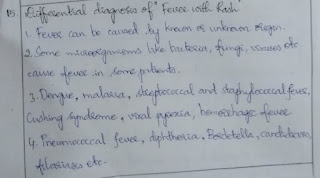 15. Differential diagnosis of "Fever with Rash"
1. Fever can be caused by known or unknown origin.
2. Some microorganisms like bacteria, fungi, viruses etc
cause fever in some patients.
3. Dengue, malaria, streptococcal and staphylococcal fever,
Cushing syndrome, viral pyrexia, hemorrhagic fever
4. Pneumococcal fever, diphtheria, Bordetella, candidiasis,
filariasis etc-